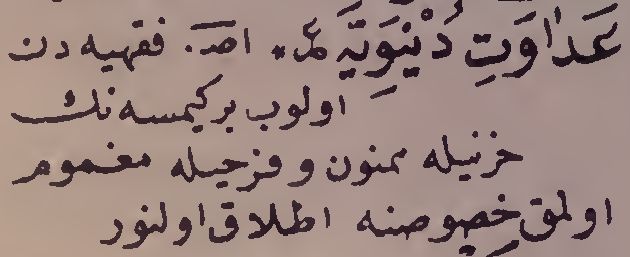 عَدَاوَتِ دُنْيَوِيَّه ع* اصـ. فقهیه دن
اولوب بر کیمسه نك
حزنیله ممنون و فرحیله مغموم
اولمق خصوصنه اطلاق اولنور